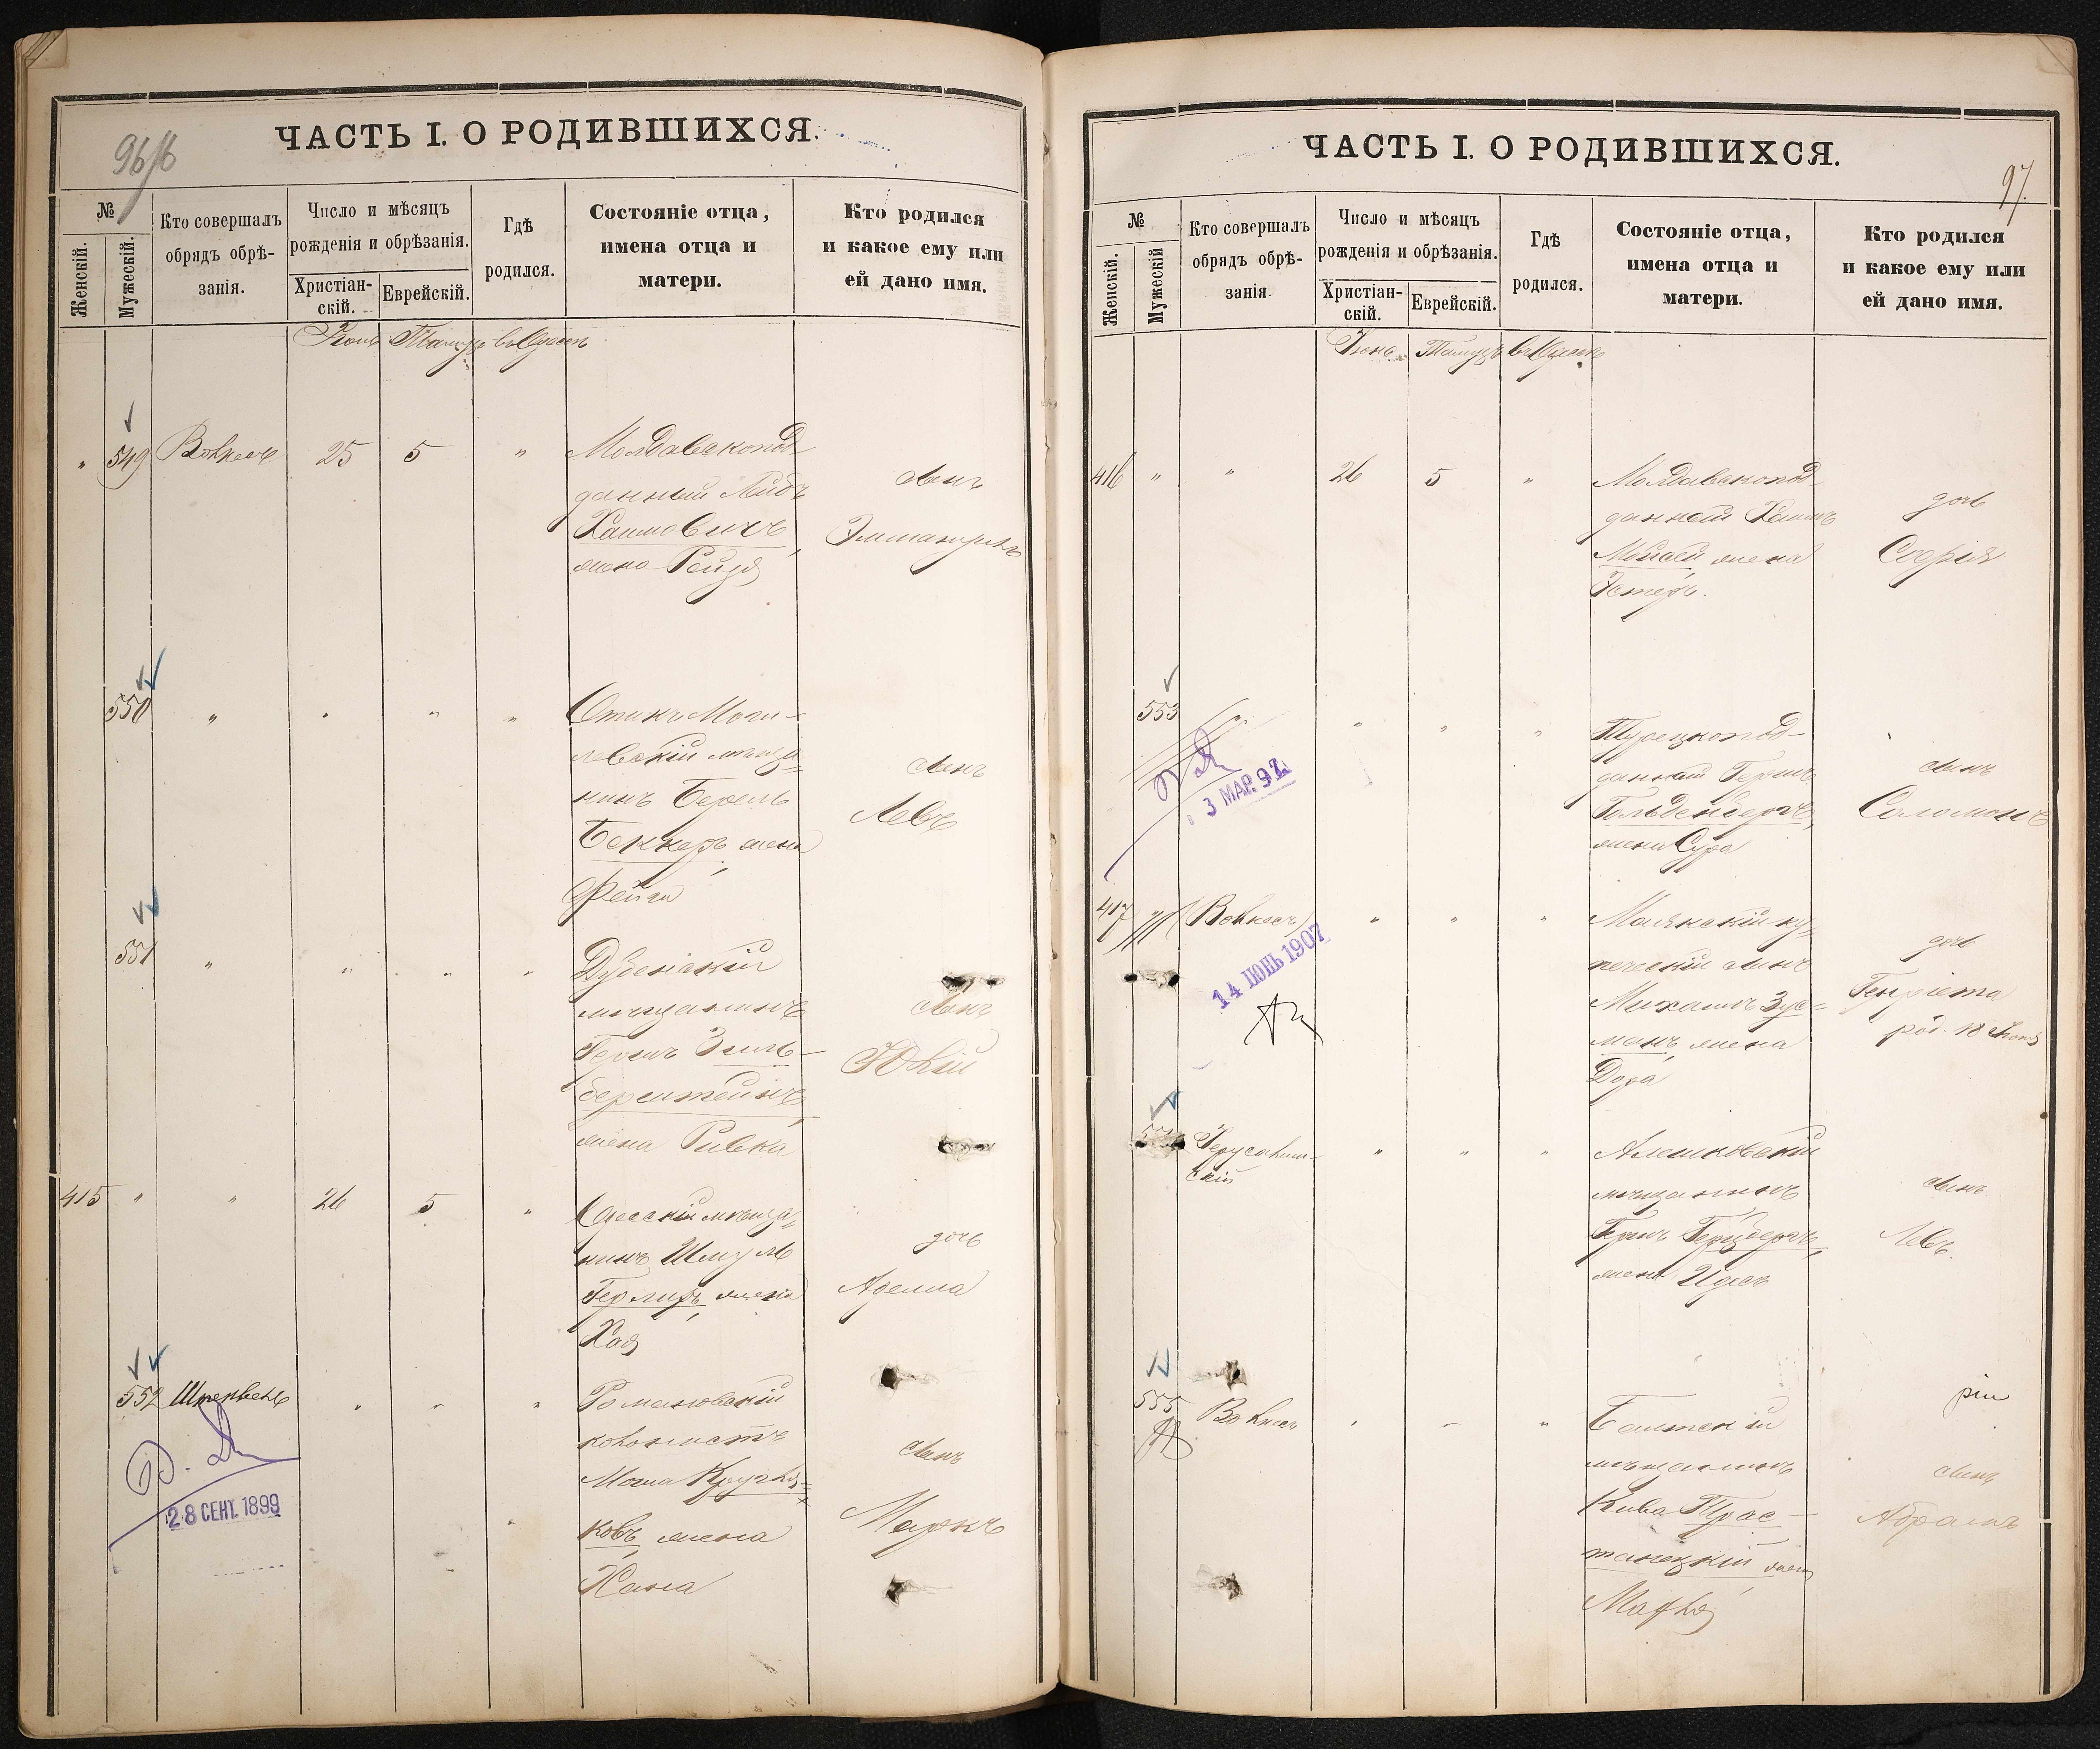 96/b
ЧАСТЬ I. О РОДИВШИХСЯ.
№
Женскій.
Мужескій.
Кто совершалъ
обрядъ обрѣ-
занія.
Число и мѣсяцъ
рожденія и обрѣзанія.
Христіан-
скій.
Еврейскій.
Гдѣ
родился.
Состояніе отца,
имена отца и
матери.
Кто родился
и какое ему или
ей дано имя.
Іюнь Тамузъ въ Одессѣ
" 549 25 5 " Молдавскопод-
данный Лейбъ
Хаимовичъ,
жена Рейзя
сынъ
550 " " " "
левскій мѣща-
нинъ Берель
Беккеръ, жена
Фейга
сынъ
Левъ
551 " " " " Дубенскій
мѣщанинъ
Гершъ Зиль-
берштейнъ,
жена Ривка
сынъ
Юлій
415 " " 26 5 " Одесскій мѣща-
нинъ Шмуль
жена
Хая
дочь
Аделла
552 " " " Романовскій
колонистъ
ковъ, жена
Хана
сынъ
Маркъ
28 СЕНТ. 1899
97.
ЧАСТЬ I. О РОДИВШИХСЯ.
№
Женскій.
Мужескій
Кто совершалъ
обрядъ обрѣ-
занія.
Число и мѣсяцъ
рожденія и обрѣзанія.
Христіан-
скій.
Еврейскій.
Гдѣ
родился.
Состояніе отца,
имена отца и
матери.
Кто родился
и какое ему или
ей дано имя.
Іюнь Тамузъ въ Одессѣ
416 " " 26 5 " Молдавскопод-
данный Хаимъ
Мойсей, жена
Эстеръ.
дочь
Софія
553 " " " " Турецкопод-
данный Гершъ
Гольденбергъ,
жена Сура
сынъ
Соломонъ
3 МАР. 97
417 " " " Маякскій ку-
печескій сынъ
Михаилъ Зус-
манъ, жена
Дора
дочь
Генріета
14 ІЮНЬ 1907
Іерусалим-
скій
" " " Алешковскій
мѣщанинъ
Гершъ Герцбергъ,
жена Идесъ
сынъ
Левъ.
555 " Балтскій
мѣщанинъ
Кива Трос-
танецкій, жена
сынъ
Абрамъ